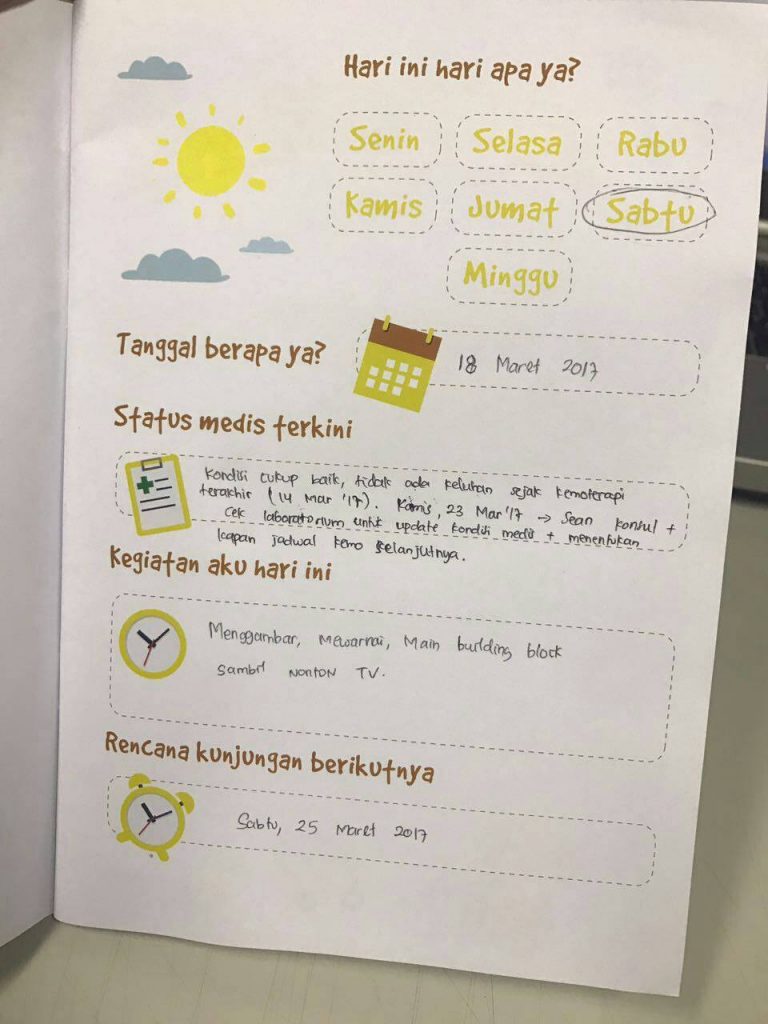 Hari ini hari apa ya?
Senin Selasa Rabu
Kamis Jumat Sabtu
Minggu
Tanggal berapa ya?
18 Maret 2017
Status medis terkini
Kondisi cukup baik, tidak ada keluhan sejak kemoterapi
terakhir (14 Mar '17). Kamis, 23 Mar'17 → Sean konsul +
cek laboratorium untuk update kondisi medis + menentukan
kapan jadwal kemo selanjutnya.
Kegiatan aku hari ini
Menggambar, mewarnai, main building block
sambil nonton TV.
Rencana kunjungan berikutnya
Sabtu, 25 Maret 2017